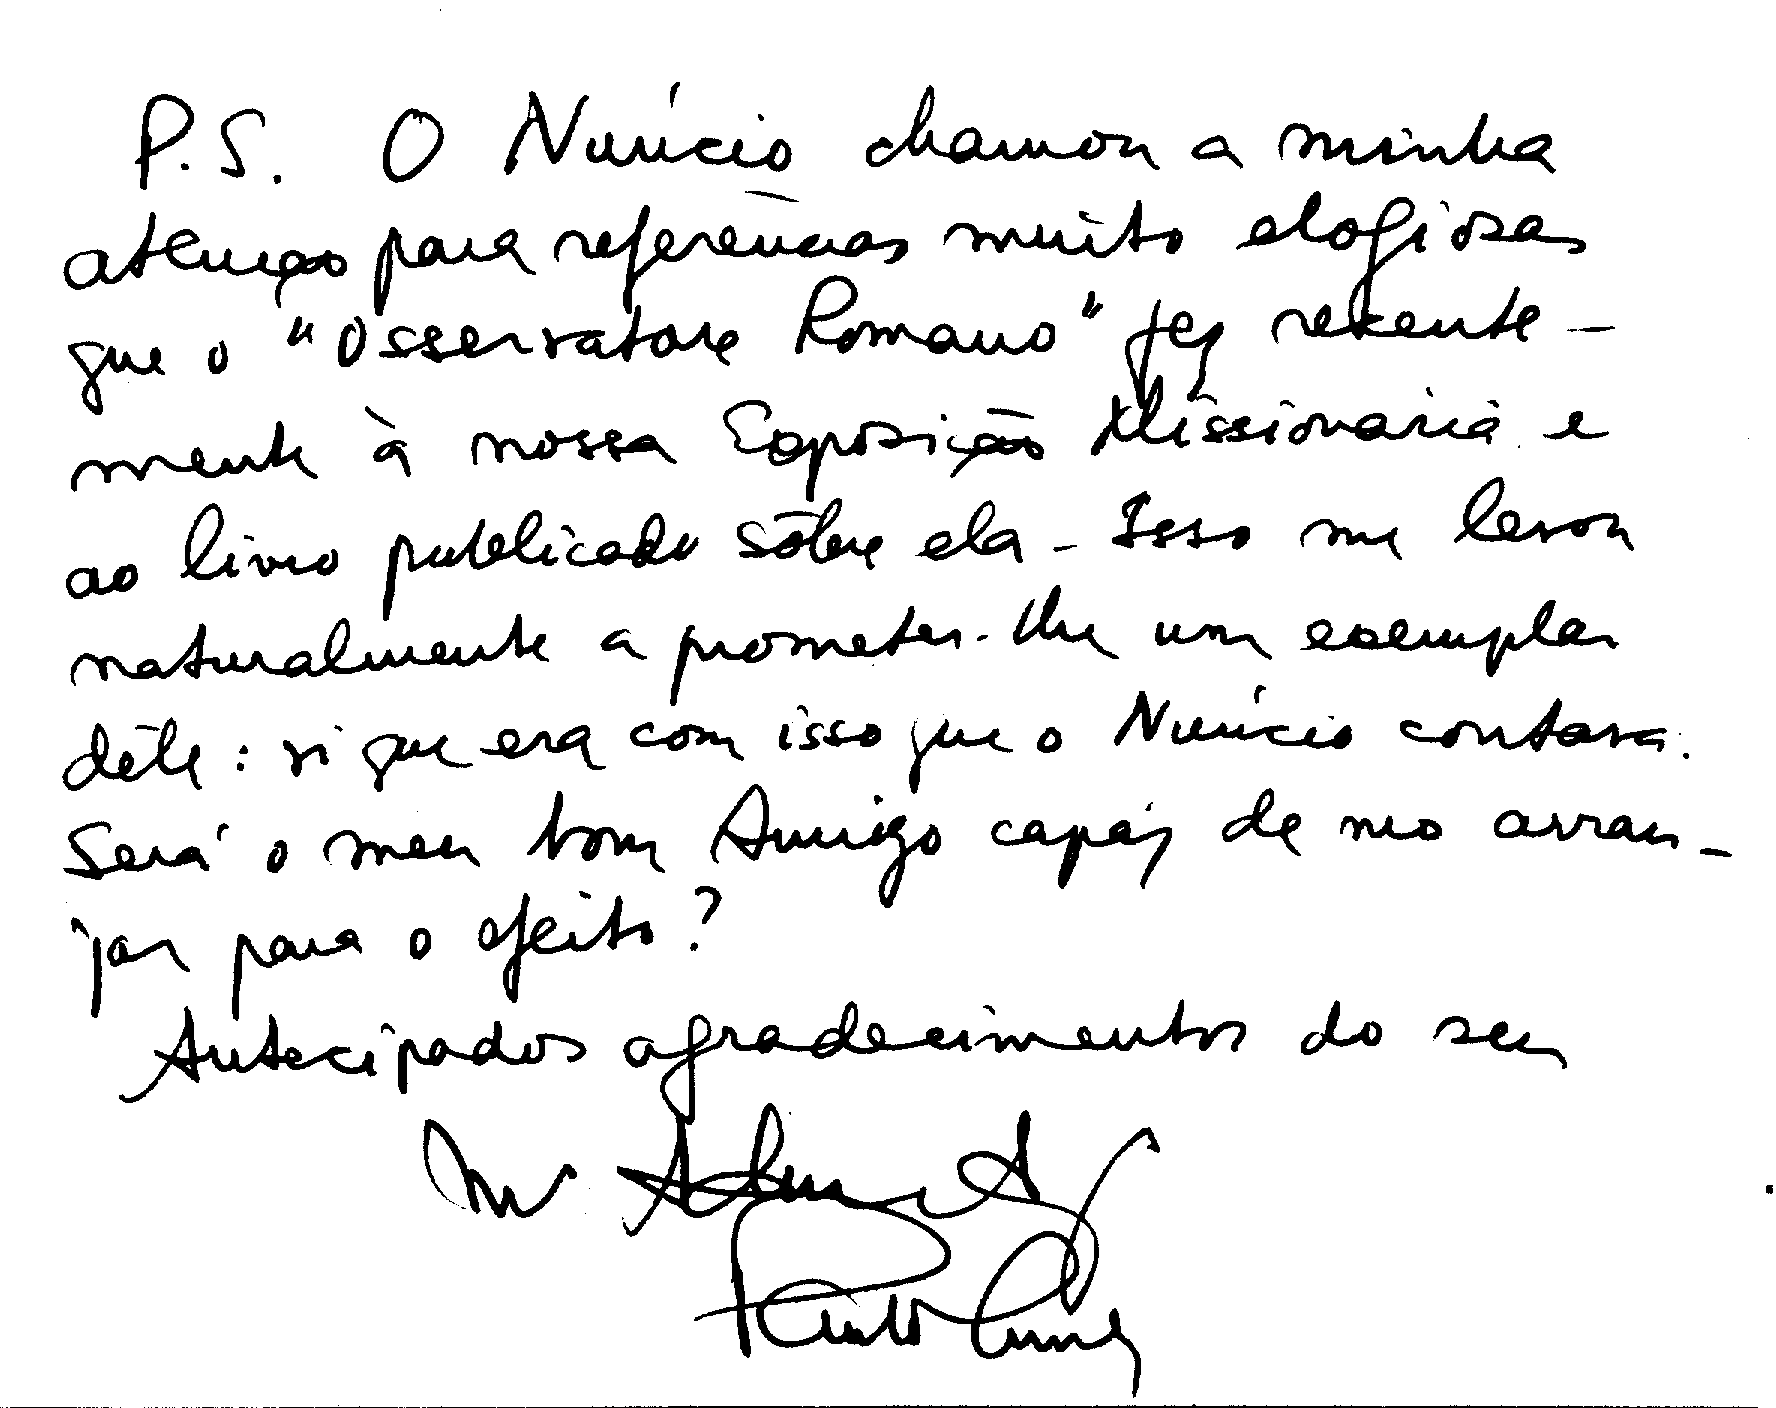 P.S. O Núncio chamou a minha
atenção para referências muito elogiosas
que o "Osservatore Romano" fez recente-
mente à nossa Exposição Missionária e
ao livro publicado sôbre ela - Isso me levou
naturalmente a prometer-lhe um exemplar
dêle: vi que era com isso que o Núncio contava.
Será o meu bom Amigo capaz de mo arran-
jar para o efeito?
Antecipados agradecimentos do seu